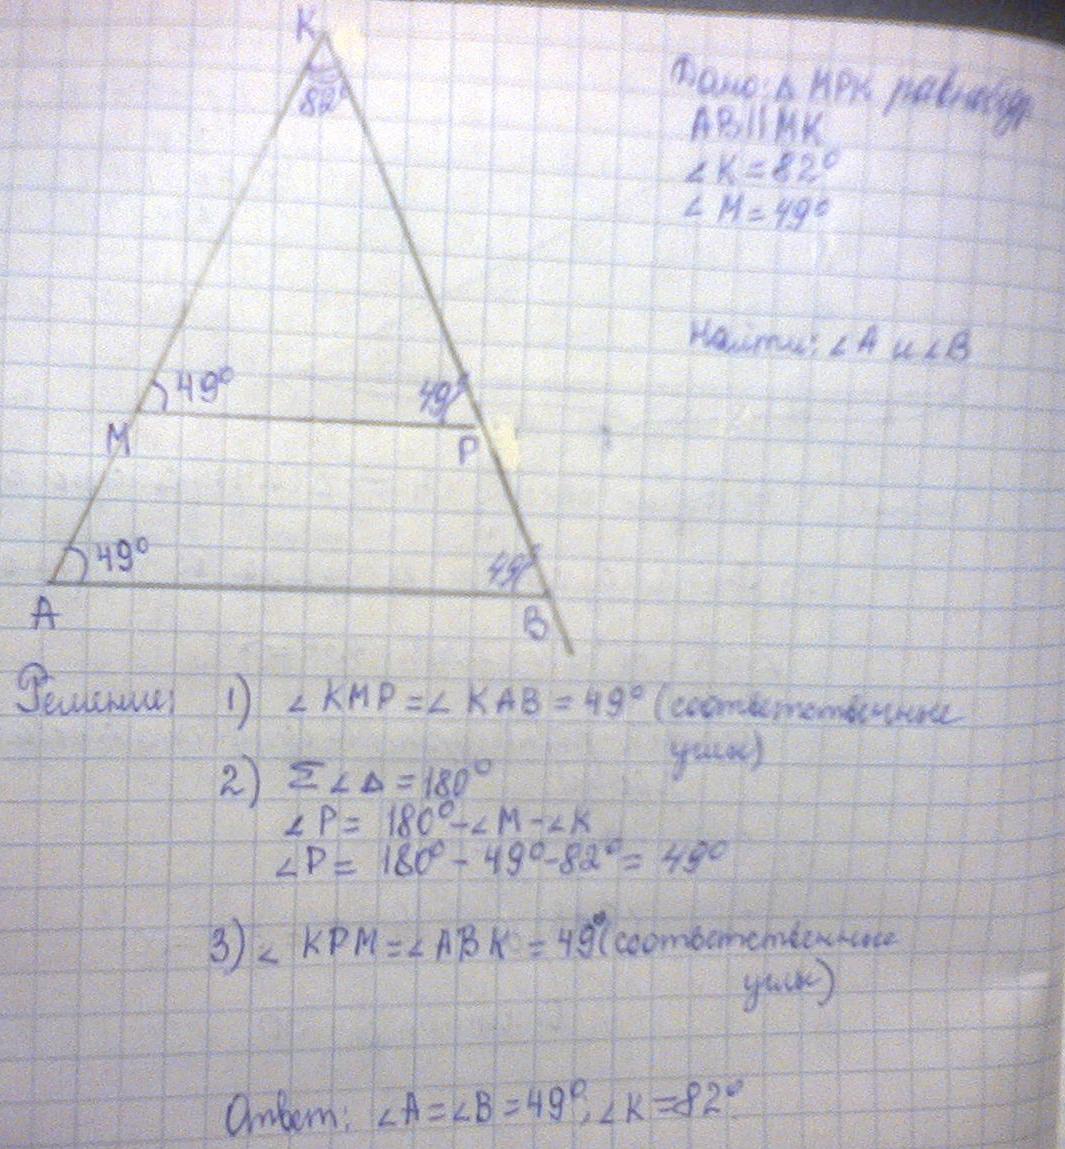 K
82°
Дано: Δ МРК равнобедр
AB||MK
∠K=82°
∠M=49°
Найти: ∠A и ∠B
49°
49°
M
P
49°
49°
A
B
Решение: 1) ∠KMP=∠KAB=49° (соответственные
углы)
2) Σ∠Δ=180°
∠P= 180°-∠M-∠K
∠P= 180°-49°-82°=49°
3) ∠ KPM=∠ABK=49° (соответственные
углы)
Ответ: ∠A=∠B=49°, ∠K=82°